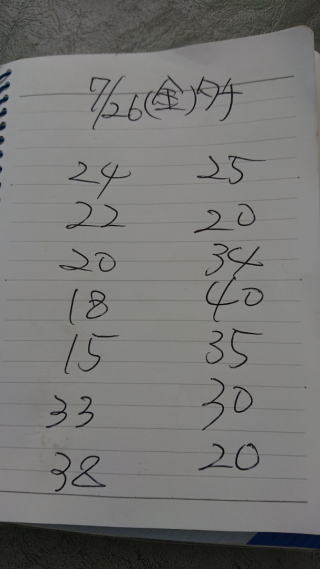 7/26(金)タケ
24 25
22 20
20 34
18 40
15 35
33 30
38 20